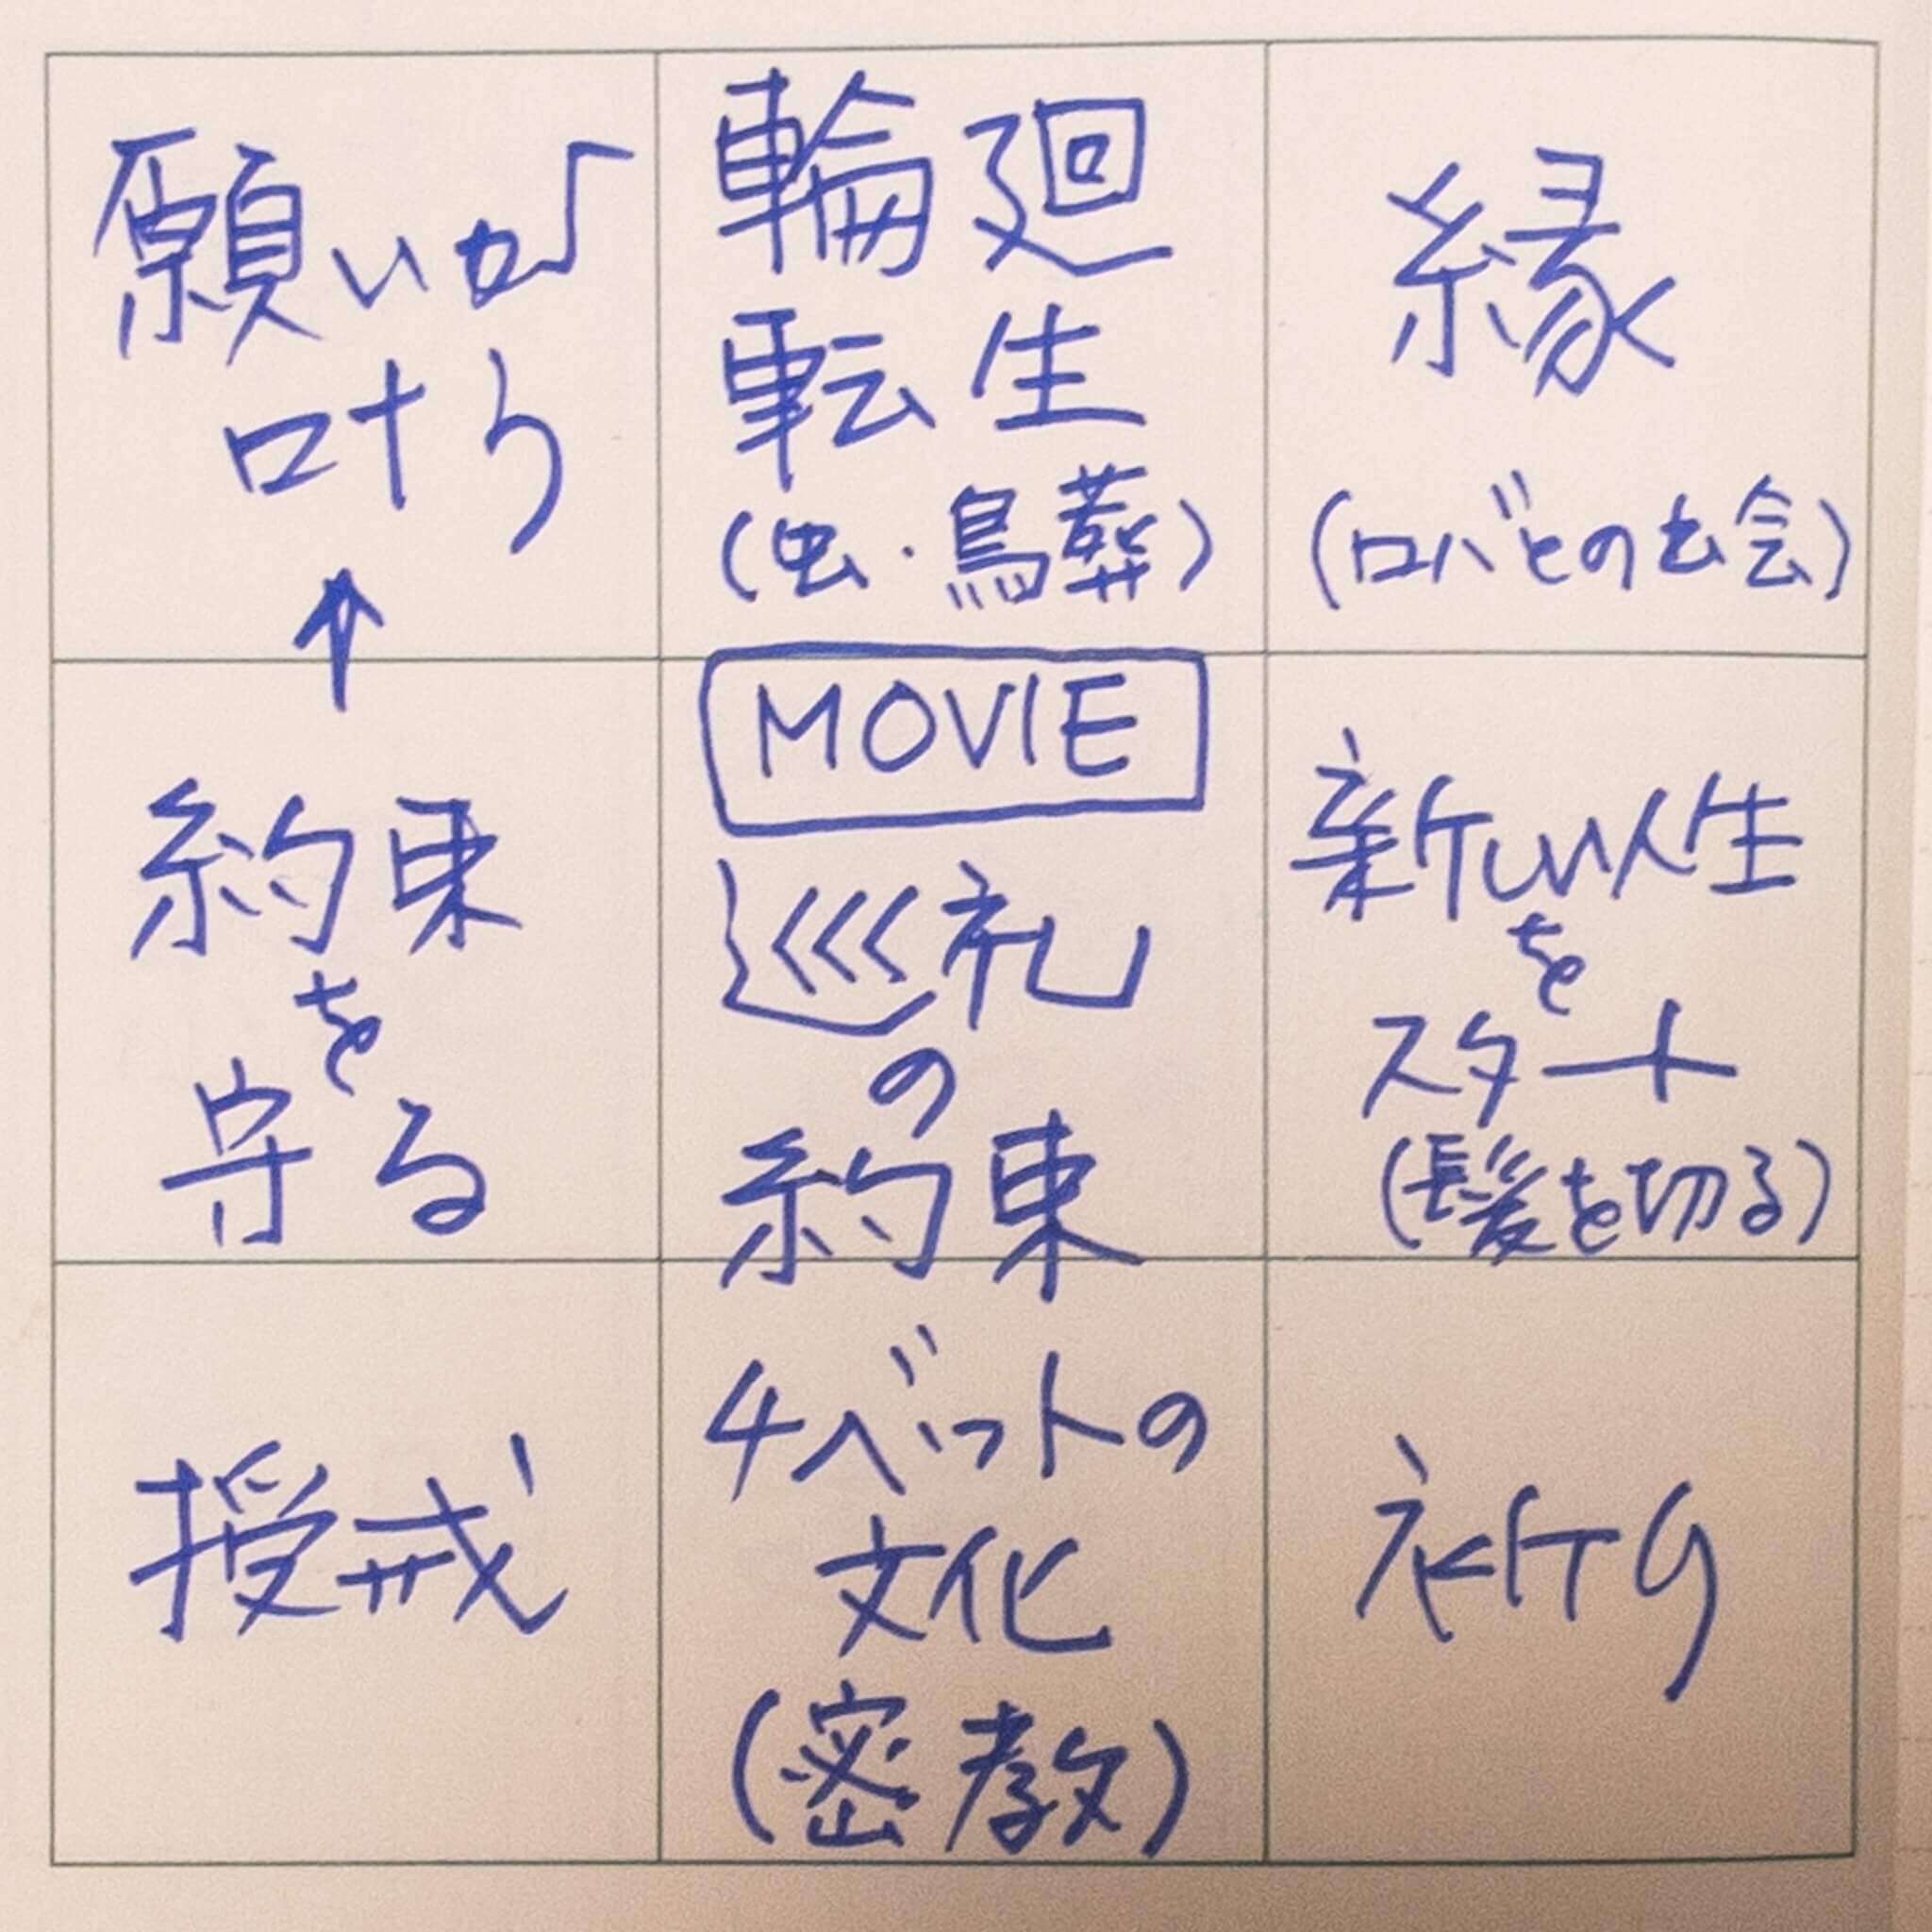 願いが
叶う
↑
輪廻
転生
(虫・鳥葬)
縁
(ロバとの出会)
約束
を
守る
MOVIE
巡礼
の
約束
新しい人生
を
スタート
(髪を切る)
授戒
チベットの
文化
(密教)
祈り